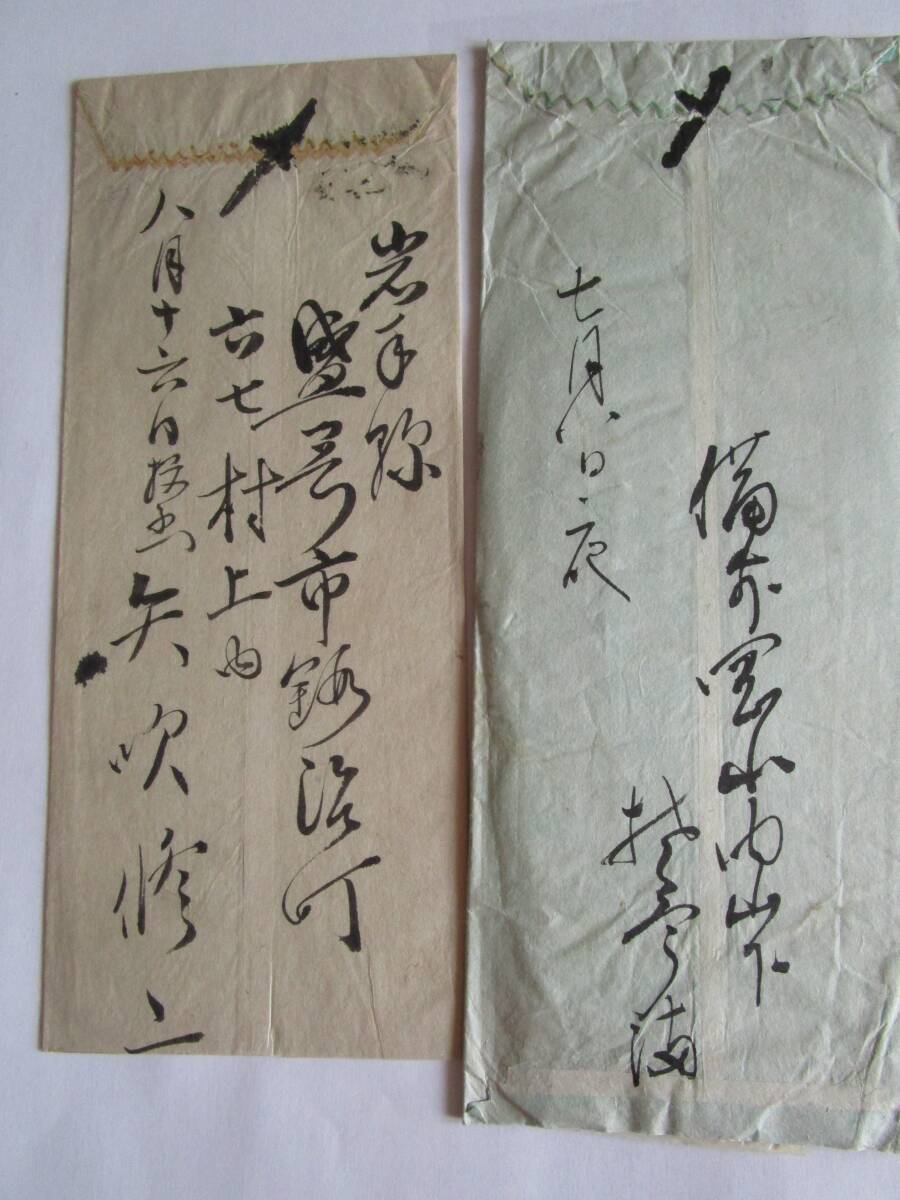 岩手縣
盛岡市鍛冶町
六七村上内
八月十六日投函 矢吹修二
備前岡山内山下
七月八日夜